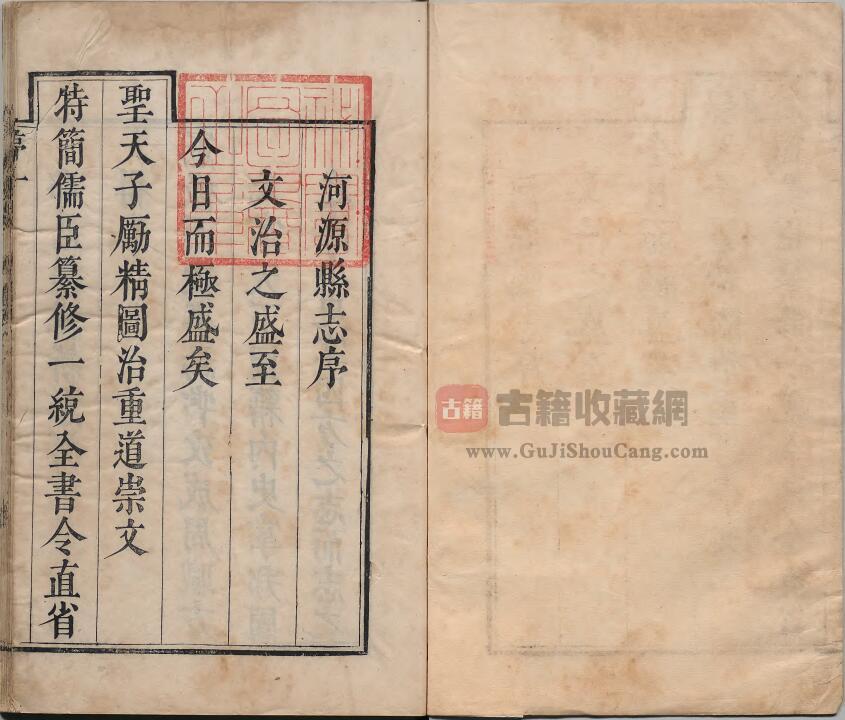 河源縣志序
文治之盛至
今日而極盛矣
聖天子勵精圖治重道崇文
特簡儒臣纂修一統全書令直省
序 一
古籍
古籍收藏網
www.GuJiShouCang.com